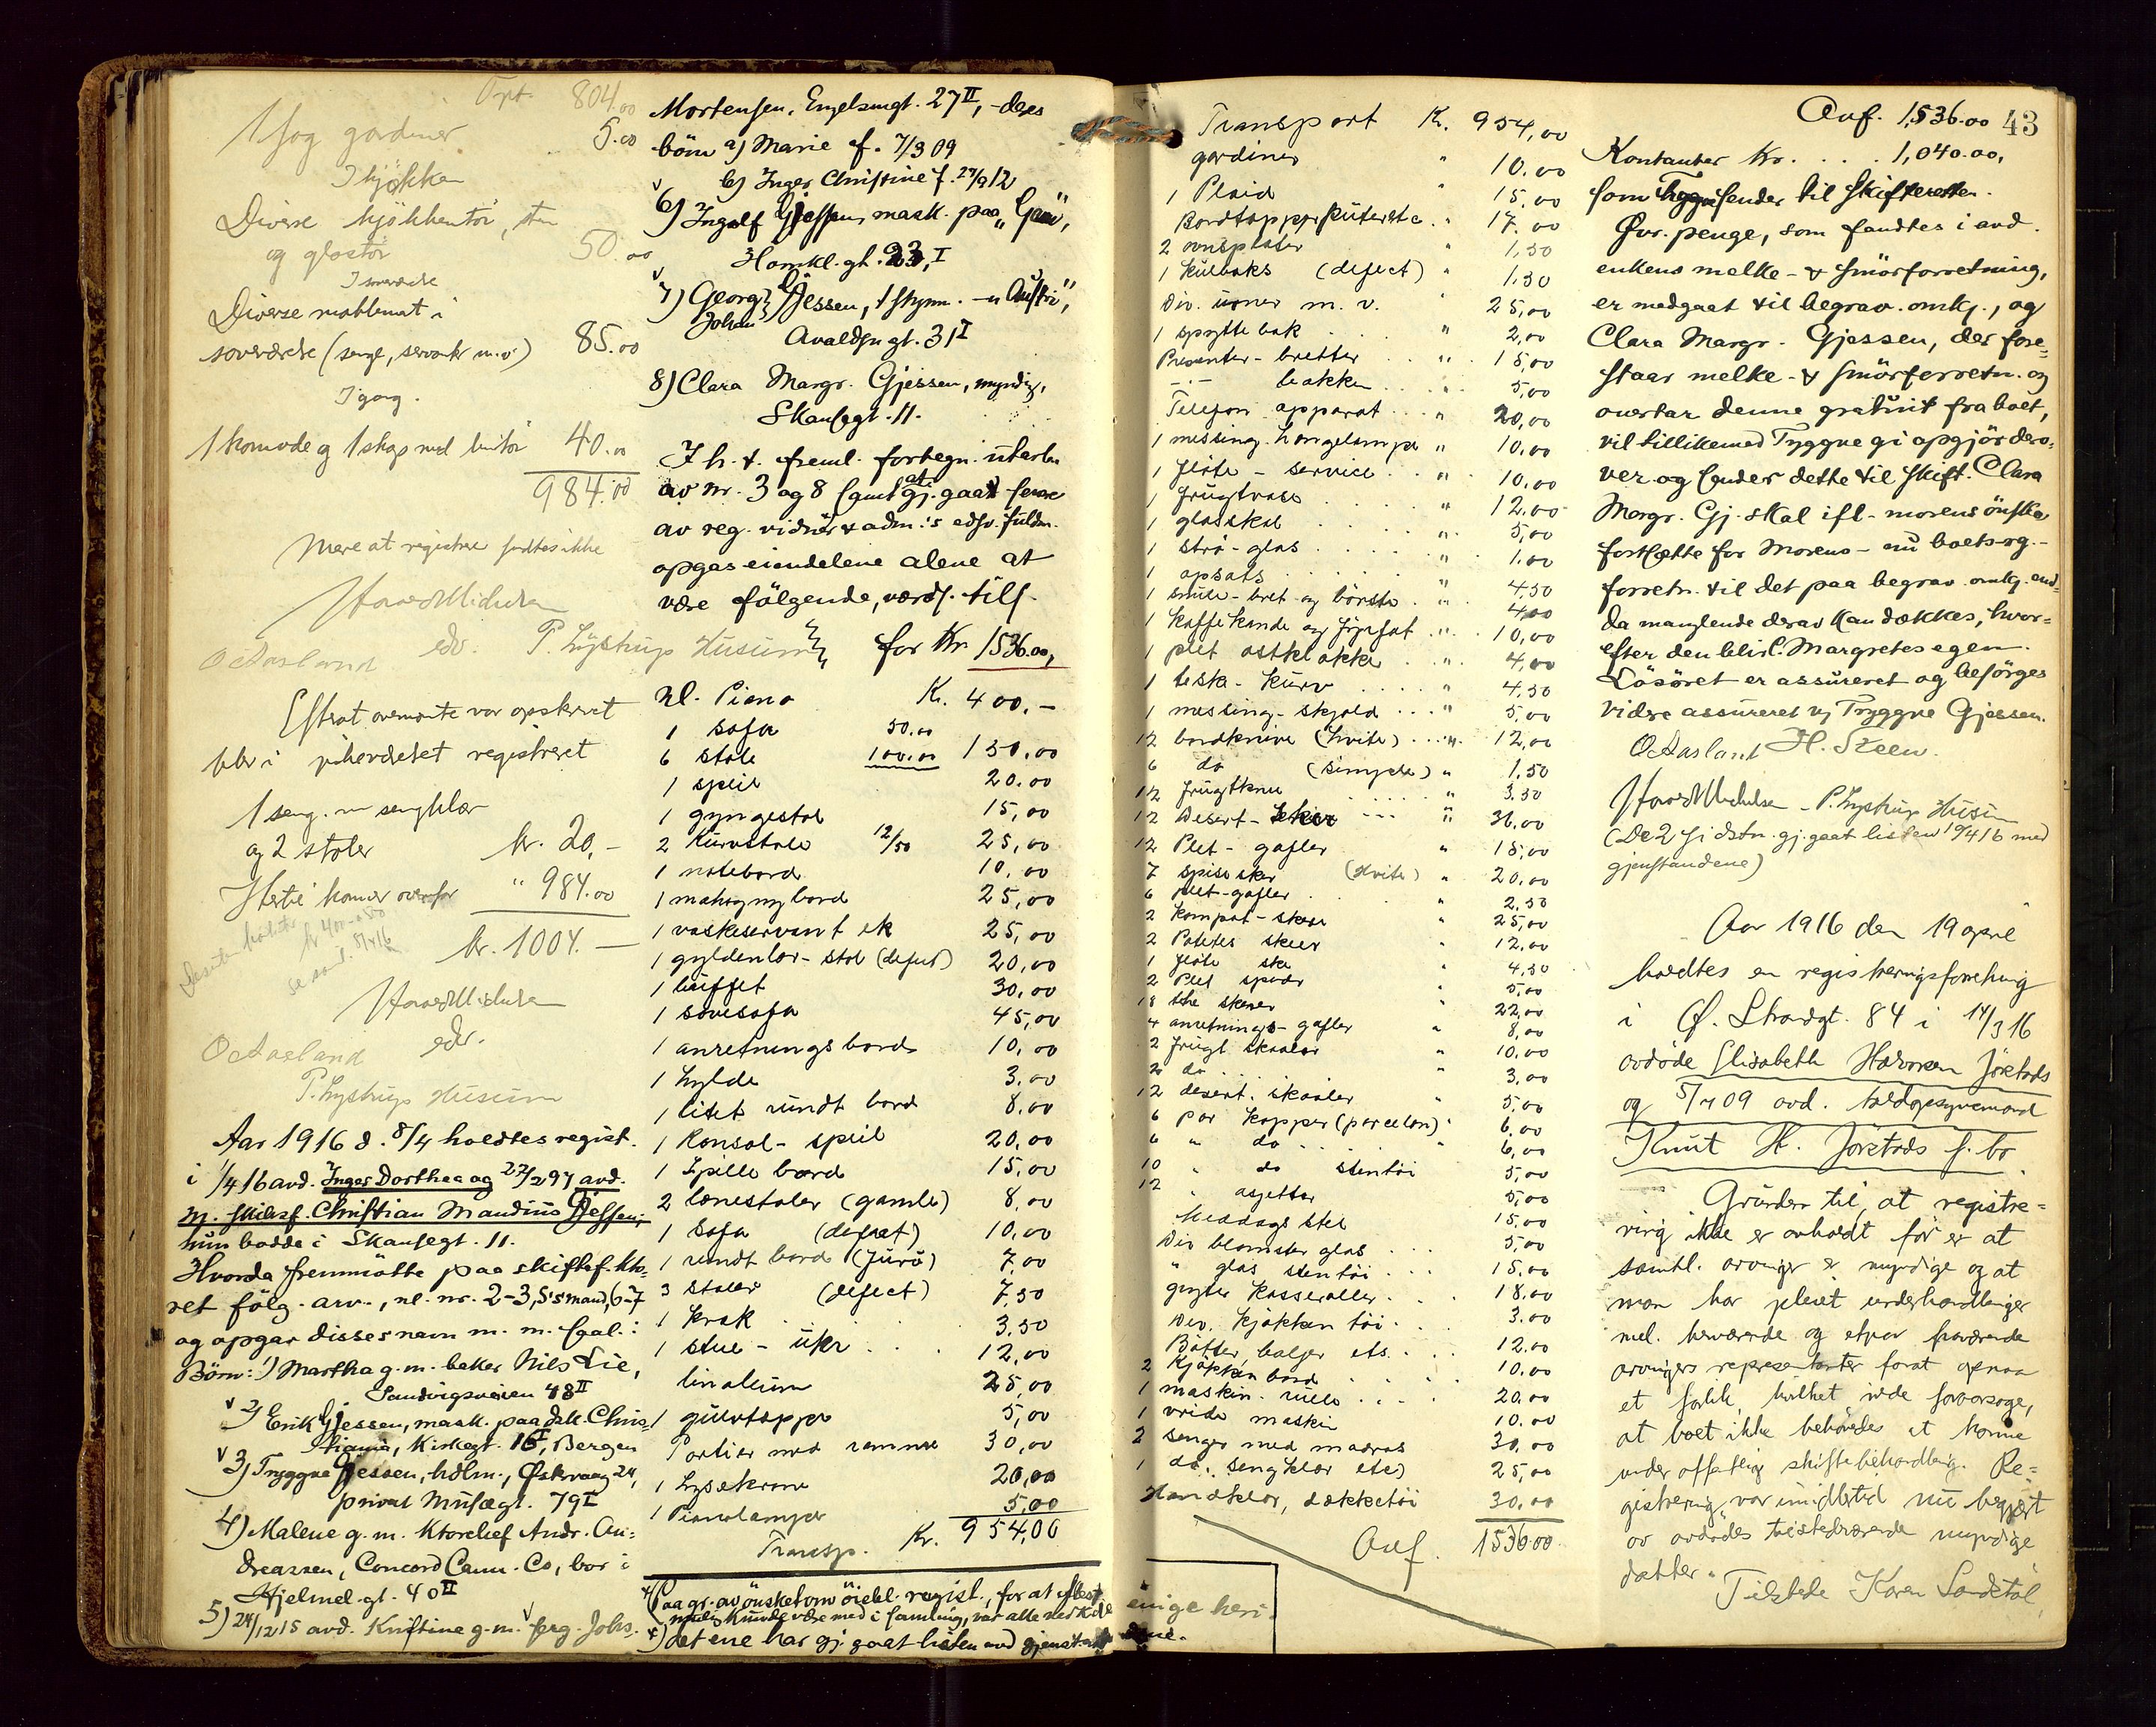 Opt. 804.00
1 fag gardiner 5.00
I kjökken
Diverse kjökkentöi, sten
og glastöi 50.00
I soverærelse
Diverse møblement i
soveværelse (senge, servanter m.v.) 85.00
I gang.
1 komode og 1 skap med lintöi 40.00
984.00
Mere at registrere fandtes ikke
edv. P. Lystrup Husum
O Aasland
Efterat ovenstaaende var opskrevet
blev i pikeværelset registreret
1 seng m sengklær
og 2 stoler kr. 20,-
Hertil kommer ovenfor " 984.00
kr. 1004.—
edv.
O Aasland
P. Lystrup Husum
Aar 1916 d. 8/4 holdtes regist.
i 1/4 16 avd. Inger Dorthea og 22/2 97 avd.
m. skibsf. Christian Mandius Gjessen,
hun bodde i Skansegt. 11.
Hvorda fremmötte paa skiftef. kto-
ret fölg. arv., nl. nr. 2-3, 5's mand, 6-7
og opgav disses navn m. m. saal.:
Börn: 1) Martha g. m. baker Nils Lie,
Sandvigsveien 48 II
v 2) Erik Gjessen, mask. paa dsk. Chris-
tiania, Kirkegt. 16 I, Bergen
v 3) Tryggve Gjessen, hdlm., Östervaag 24,
privat Musægt. 79 I
4) Malene g. m. Ktorchef Andr. An-
dreassen, Concord Cann. Co, bor i
Hjelmel. gt. 40 II
5) 24/12 15 avd. Kristine g. m. v frg. Johs.
Mortensen, Engelsmgt. 27 II, - deres
börn a) Marie f. 7/3 09
b) Inger Christine f. 27/9 12
v 6) Ingolf Gjessen, mask. paa "
Haakl. gt. 23, I
v 7) Georg Johan Gjessen, styrm. - "
Avaldsn gt. 31 I
8) Clara Margr. Gjessen, myndig,
Skansegt. 11.
I h. t. freml. fortegn. utarb.
av nr. 3 og 8 samt at gj. gaat senere
av reg. vidner & adm.'s edsv. fuldm.
opgaves eiendelene alene at
være fölgende, værds. tils.
for Kr 1536.00,
nl. Piano Kr. 400.-
1 sofa 50.00
6 stole 100.00 150.00
1 speil 20.00
1 gyngestol 15,00
2 kurvstole 12/50 25,00
1 notebord 10,00
1 mahogny bord 25,00
1 vaskeservant ek 25,00
1 gyldenlær-stol (defect) 20,00
1 büffet 30,00
1 sovesofa 45,00
1 anretningsbord 10,00
1 hylde 3.00
1 litet rundt bord 8.00
1 Konsol-speil 20,00
1 Spille bord 15,00
2 lænestoler (gamle) 8,00
1 sofa (defect) 10,00
1 rundt bord (furu) 7,00
3 stoler (defect) 7,50
1 krak 3.50
1 stue-uhr 12,00
linoleum 25,00
1 gulvtæppe 5,00
Portier med ramme 30,00
1 Lysekrone 20,00
1 Pianolampe 5,00
Transp. Kr. 954,00
x) Paa gr. av önsket om öiebl. regist., for at flest
mulig kunde være med i samling, var alle ved K.
x) det ene har gj. gaat listen med gjenstandene.
Transport Kr. 954,00
gardiner " 10.00
1 Plaid " 15,00
Bordtæpper, puter etc. " 17.00
2 ovnsplater " 1,50
1 kulboks (defect) " 1.50
Div. urner m. v. " 25,00
1 spyttebak " 2,00
Presenter-bretter " 15,00
-"- bakker " 5,00
Telefon apparat " 20,00
1 messing. hængelampe " 10.00
1 flöte-service " 10,00
1 frugtvase " 12.00
1 glasskal " 5,00
1 strö-glas " 1.00
1 opsats " 4,50
1 smule-bret og börste " 4,00
1 Kaffekande og fyrfat " 10,00
1 plet osteklokke " 4,00
1 teske-kurv " 4.50
1 messing-skjold " 5,00
12 bordknive (hvite) " 12,00
6 do (simple) " 1.50
12 frugtknive " 3.50
12 Desert-skeer " 36.00
12 Plet-gafler " 15,00
7 spiseskeer (hvite) " 20.00
6 plet-gafler " 2,50
2 Kompot-skeer " 25,00
2 Potetes skeer " 12.00
1 flöte ske " 4,50
2 Plet spader " 5,00
18 the skeer " 22,00
4 anretnings-gafler " 8,00
2 frugt skaaler " 10.00
2 do " 3,00
12 desert. skaaler " 5,00
6 par kopper (porcelæn) " 6,00
6 " do " 6,00
10 " do stentöi 5,00
12 " asjetter 5,00
Middags stel 15,00
Div blomster glas 5,00
" glas stentöi 15,00
gryter kasseroller 18.00
Div. kjökken töi 3.00
Bötter, baljer etc. 12.00
2 Kjökken bord 10.00
1 maskin. rulle 20.00
1 vride maskin 10.00
2 senger med madras 30.00
1 do. sengklær etc 25,00
Haandklær, dækketöi 30.00
Ovf. 1536.00
Ovf. 1,536.00 43
Kontanter Kr. . . . 1,040.00,
som Trygve sender til Skifteretten.
Övr. penge, som fandtes i avd.
enkens melke- & smörforretning,
er medgaat til begrav. omkj., og
Clara Margr. Gjessen, der fore-
staar melke- & smörforretn. og
overtar denne gratuit fra boet,
vil tillikemed Tryggve gi opgjör dero-
ver og sender dette til skift. Clara
Margr. Gj. skal ifl. morens önske
fortsætte for Morens - nu boets - rg. -
forretn. til det paa begrav. omkj. end-
da manglende derav kan dækkes, hvor-
efter den blir C. Margretes egen.
Lösöret er assureret og besörges
videre assureret v/ Tryggve Gjessen.
O Aasland H. Steen.
P. Lystrup Husum
(De 2 gj. gaat listen 10/4 16 med
gjenstandene)
Aar 1916 den 19 april
holdtes en registreringsforretning
i Ö. Strandgt. 84 i 14/3 16
avdöde Elisabeth Halvorsen Jöretads
og 5/7 09 avd. toldopsynsmand
Knut H. Jöretads f. bo.
Grunden til, at registre-
ring ikke er avholdt för er at
samtl. arvinger er myndige og at
man har pleiet underhandlinger
mel. herværende og etpar fraværende
arvingers repræsentanter forat opnaa
et forlik, hvilket vide foraarsage,
at boet ikke behövdes at komme
under offentlig skiftebehandling. Re-
gistrering var imidlertid nu begjært
av avdödes tilstedeværende myndige
datter. Tilstede Karen Sandstöl